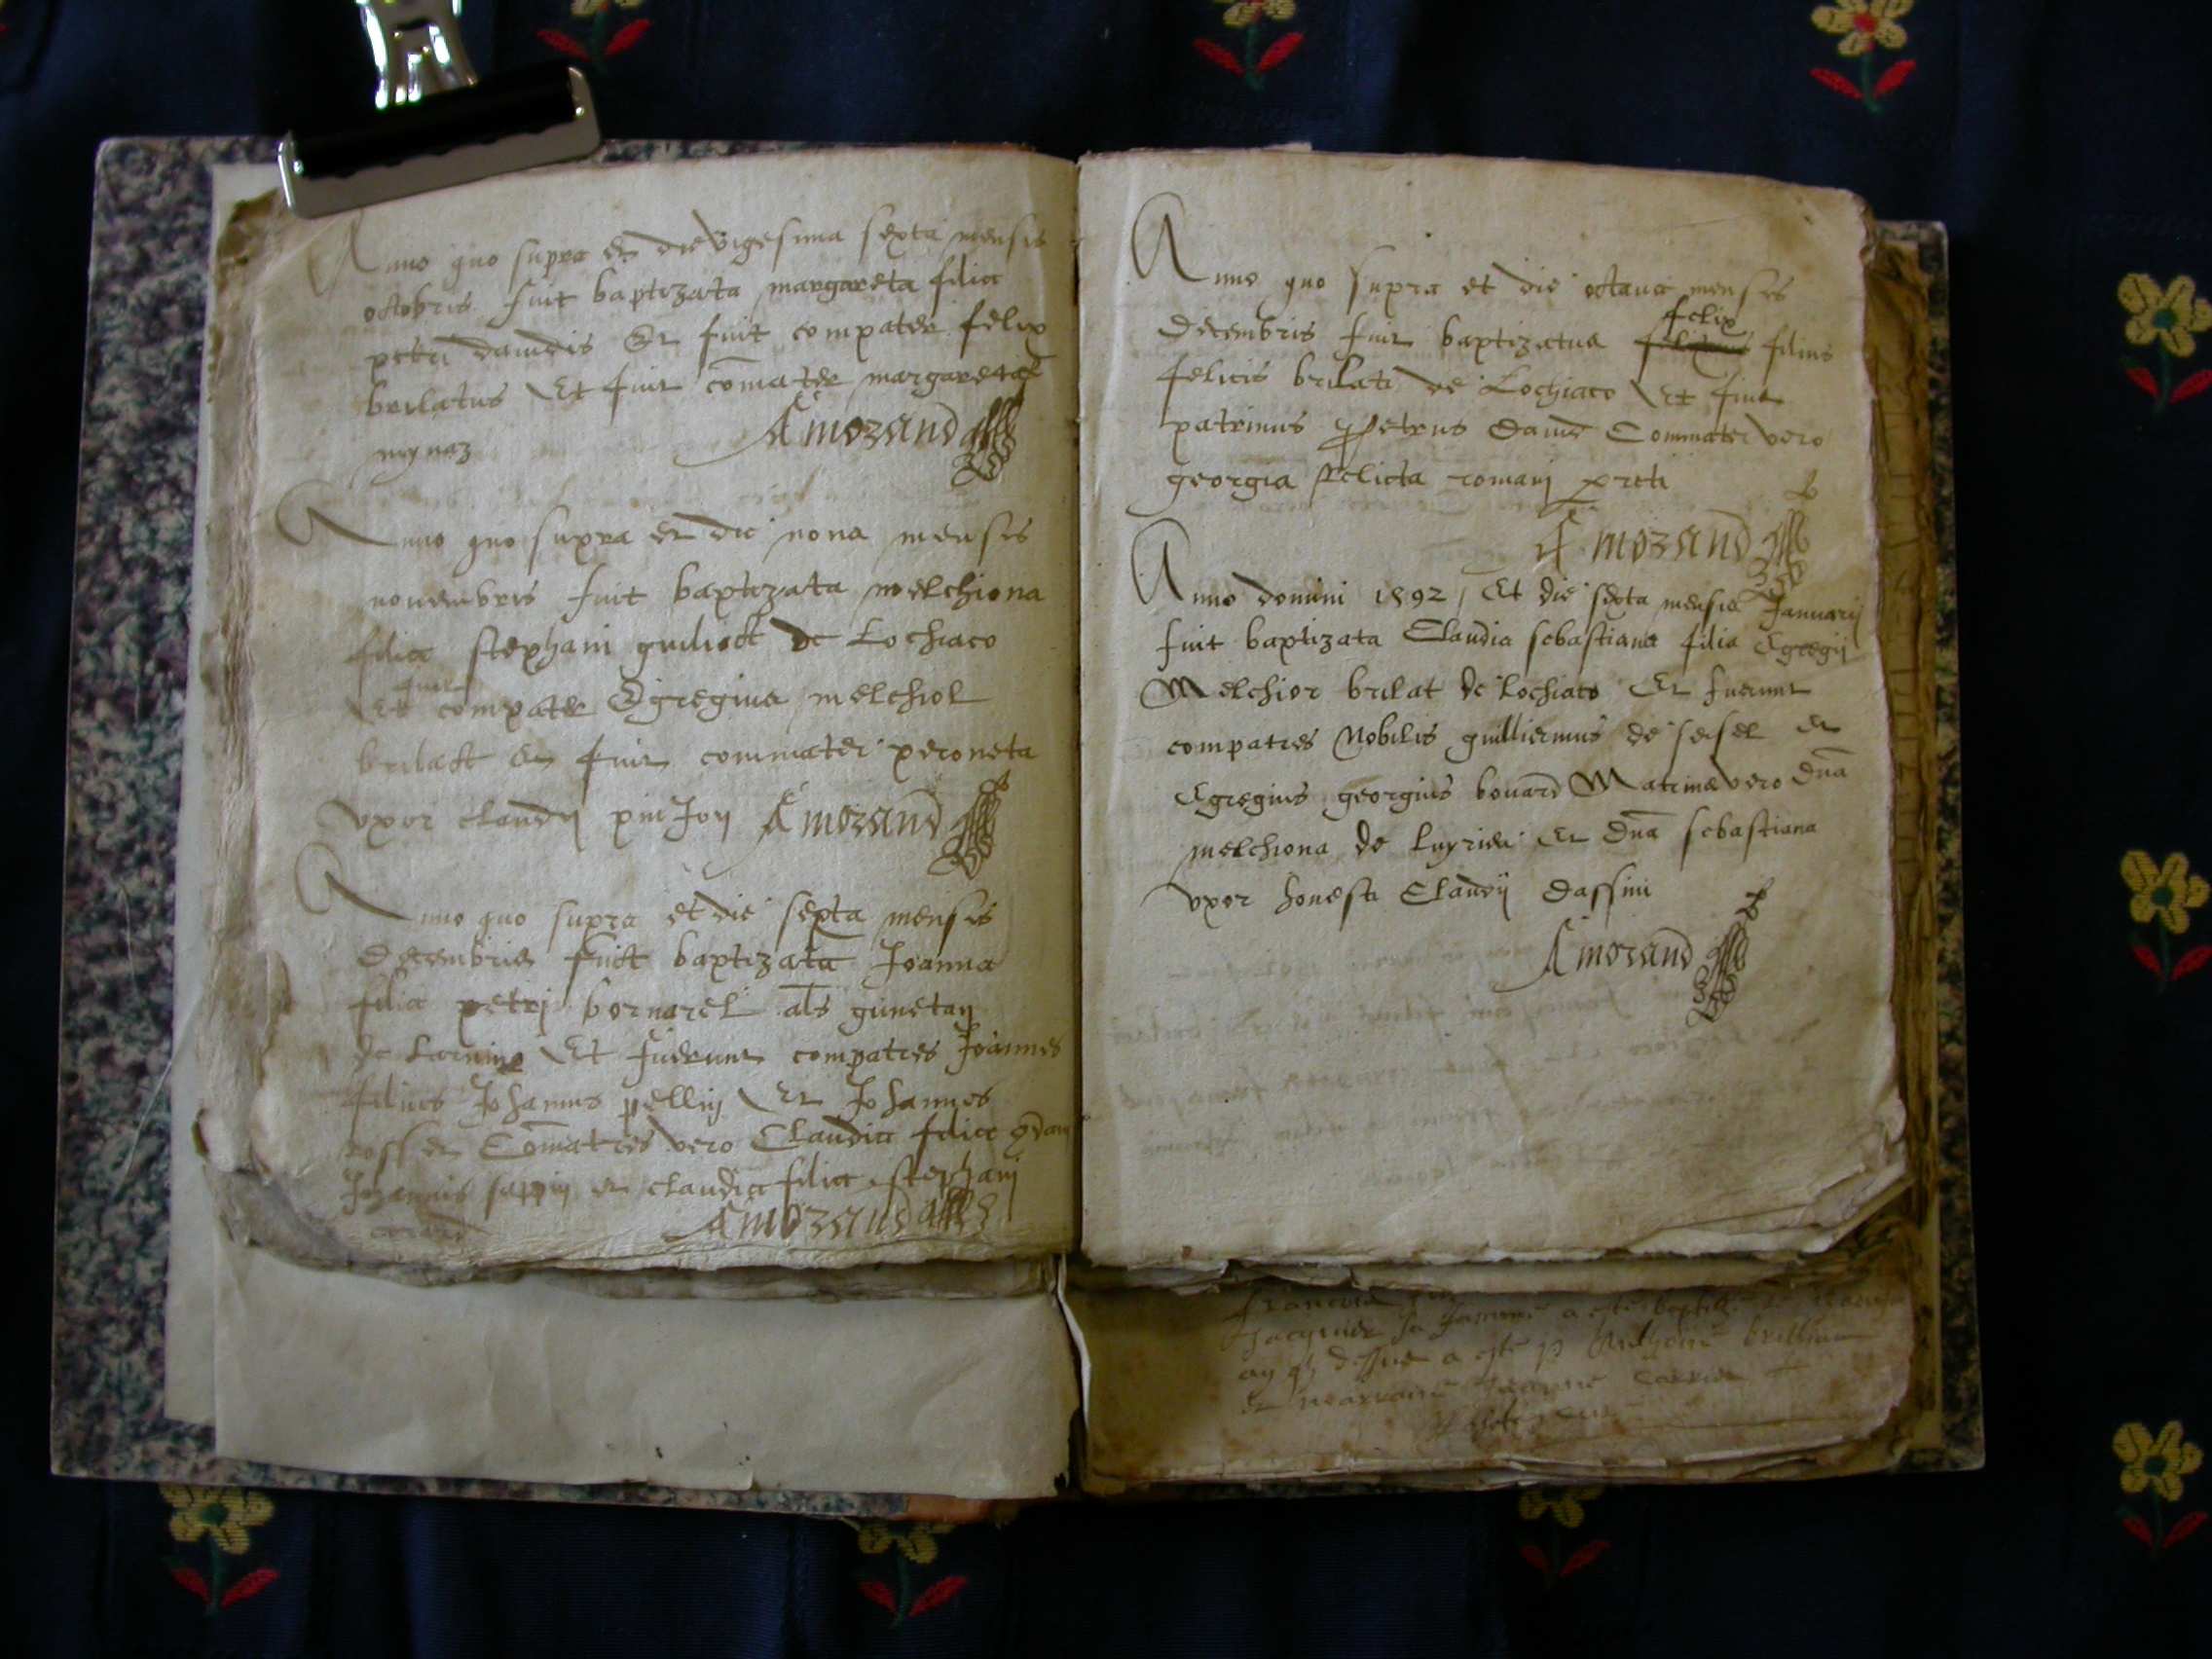 Anno quo supra et die vigesima sexta mensis
octobris fuit baptizata margareta filia
petri dauidis Et fuit compater felix
brilatus Et fuit comater margareta
mynaz
Amorand
Anno quo supra et die nona mensis
nouembris fuit baptizata melchiona
filia stephani guilioct de Lochiaco
fuit
Et compater Egregius melchiol
brilact et fuit commater peroneta
vxor claudij Amorand
Anno quo supra et die sexta mensis
decembris fuict baptizata Joanna
filia petri bornarel als gunetaij
de Et fuerunt compatres Joannes
filius Johannis pellij Et Johannes
rosset Comatres vero Claudia filia qdam
Johannis sappij et claudia filia stephani
Amorand
Anno quo supra et die octaua mensis
felix
decembris fuit baptizatus filius
felicis brilati de Lochiaco Et fuit
patrinus petrus dauid Commater vero
georgia relicta romanj preti
Amorand
Anno domini 1592 Et die sexta mensis Januarij
fuit baptizata Claudia sebastiana filia Egregij
Melchior brilat de lochiaco Et fuerunt
compatres Nobilis guilliermus de seisel et
Egregius georgius bouard Matrinae vero dna
melchiona de luyrieu Et dna sebastiana
vxor honesti Claudij dassini
Amorand